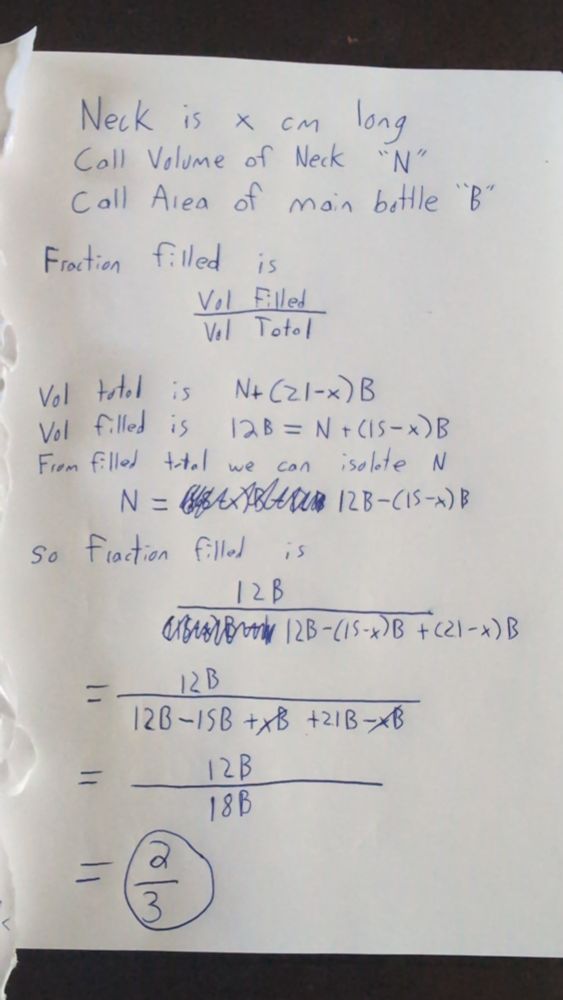 Neck is x cm long
Call Volume of Neck "N"
Call Area of main bottle "B"
Fraction filled is
Vol Filled
Vol Total
Vol total is N+(21-x)B
Vol filled is 12B = N+(15-x)B
From filled total we can isolate N
N = 12B-(15-x)B
So Fraction filled is
12B
12B-(15-x)B +(21-x)B
= 12B
12B-15B +xB +21B-xB
= 12B
18B
= 2
3